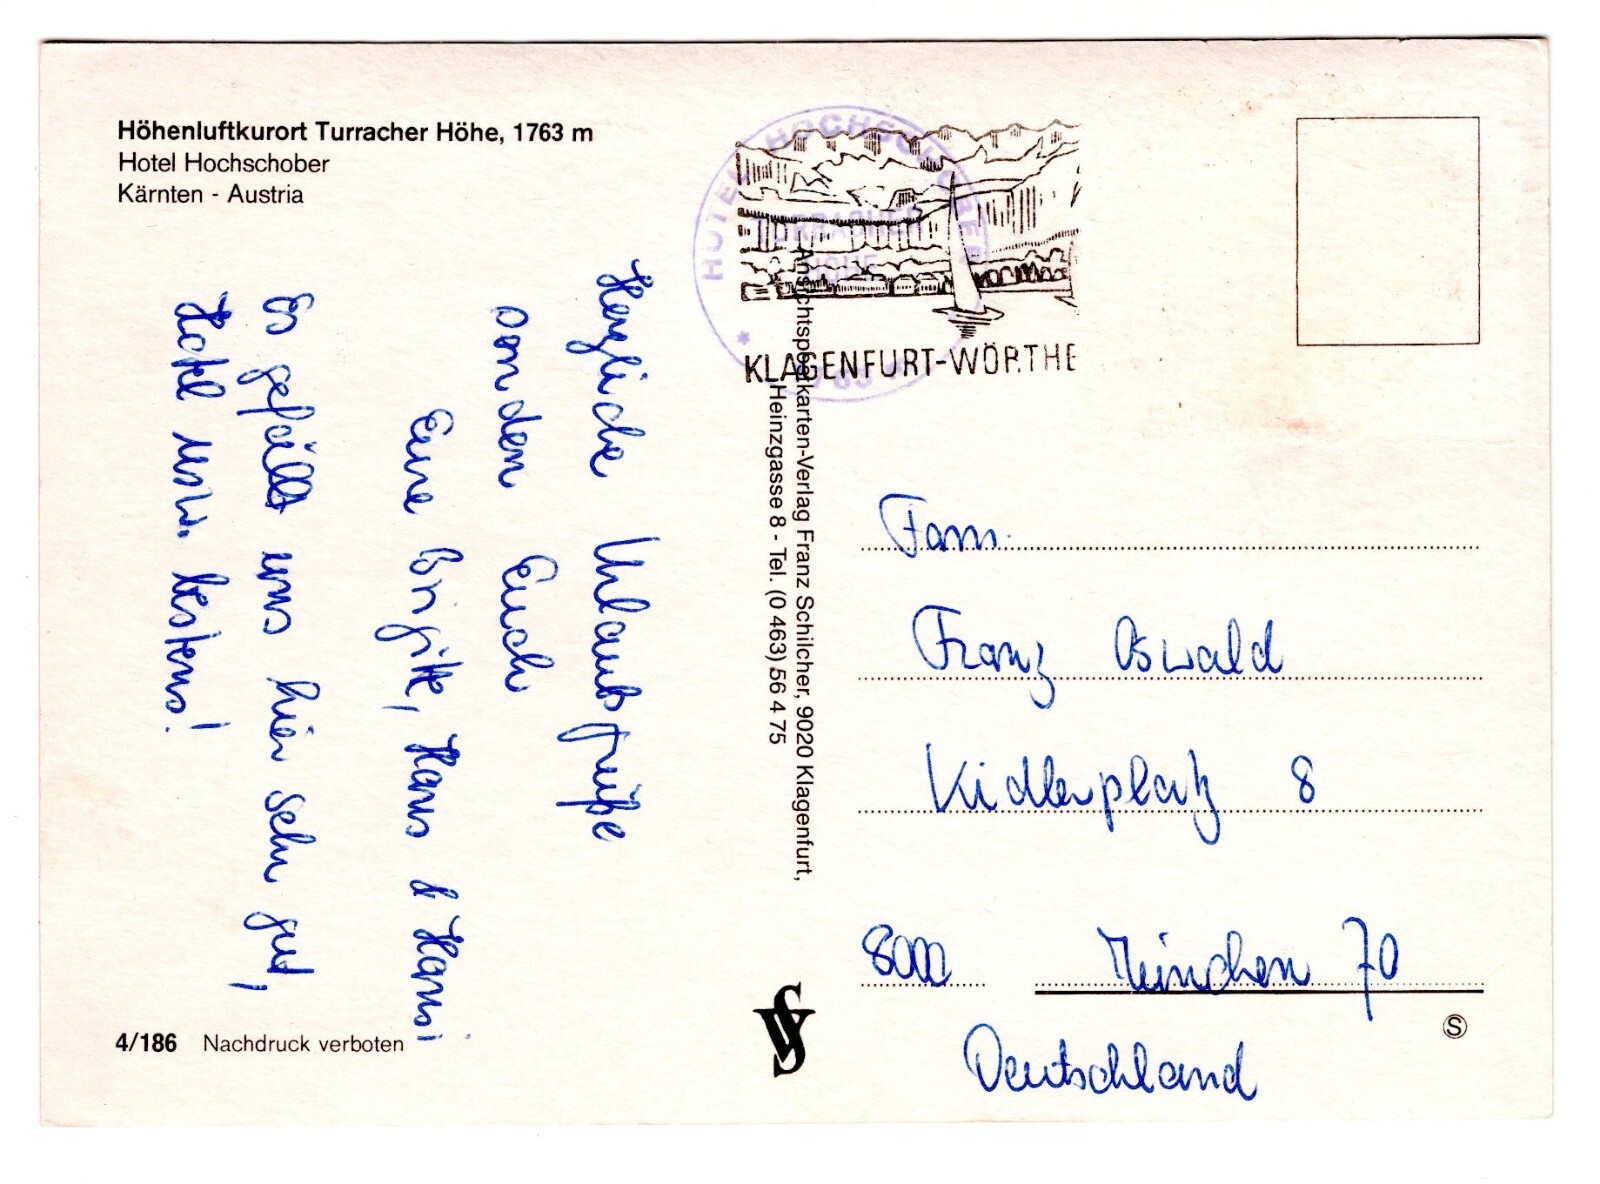 Höhenluftkurort Turracher Höhe, 1763 m
Hotel Hochschober
Kärnten - Austria
Herzliche Urlaubsgrüße
senden Euch
Eure Brigitte, Hans & Hansi
Es gefällt uns hier sehr gut,
Hotel usw. bestens!
4/186 Nachdruck verboten
HOTEL HOCHSCHOBER
TURRACHER
HÖHE
KLAGENFURT-WÖRTHE
Ansichtspostkarten-Verlag Franz Schilcher, 9020 Klagenfurt,
Heinzgasse 8 - Tel. (0 463) 56 4 75
Fam.
Franz Oswald
Kidlerplatz 8
8000 München 70
Deutschland
S